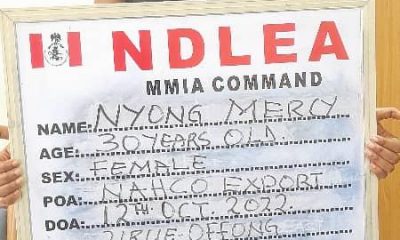 NDLEA
MMIA COMMAND
NAME: NYONG MERCY
AGE: 30 YEARS OLD
SEX: FEMALE
POA: NAHCO EXPORT
DOA: 12TH OCT. 2022
OFFONG